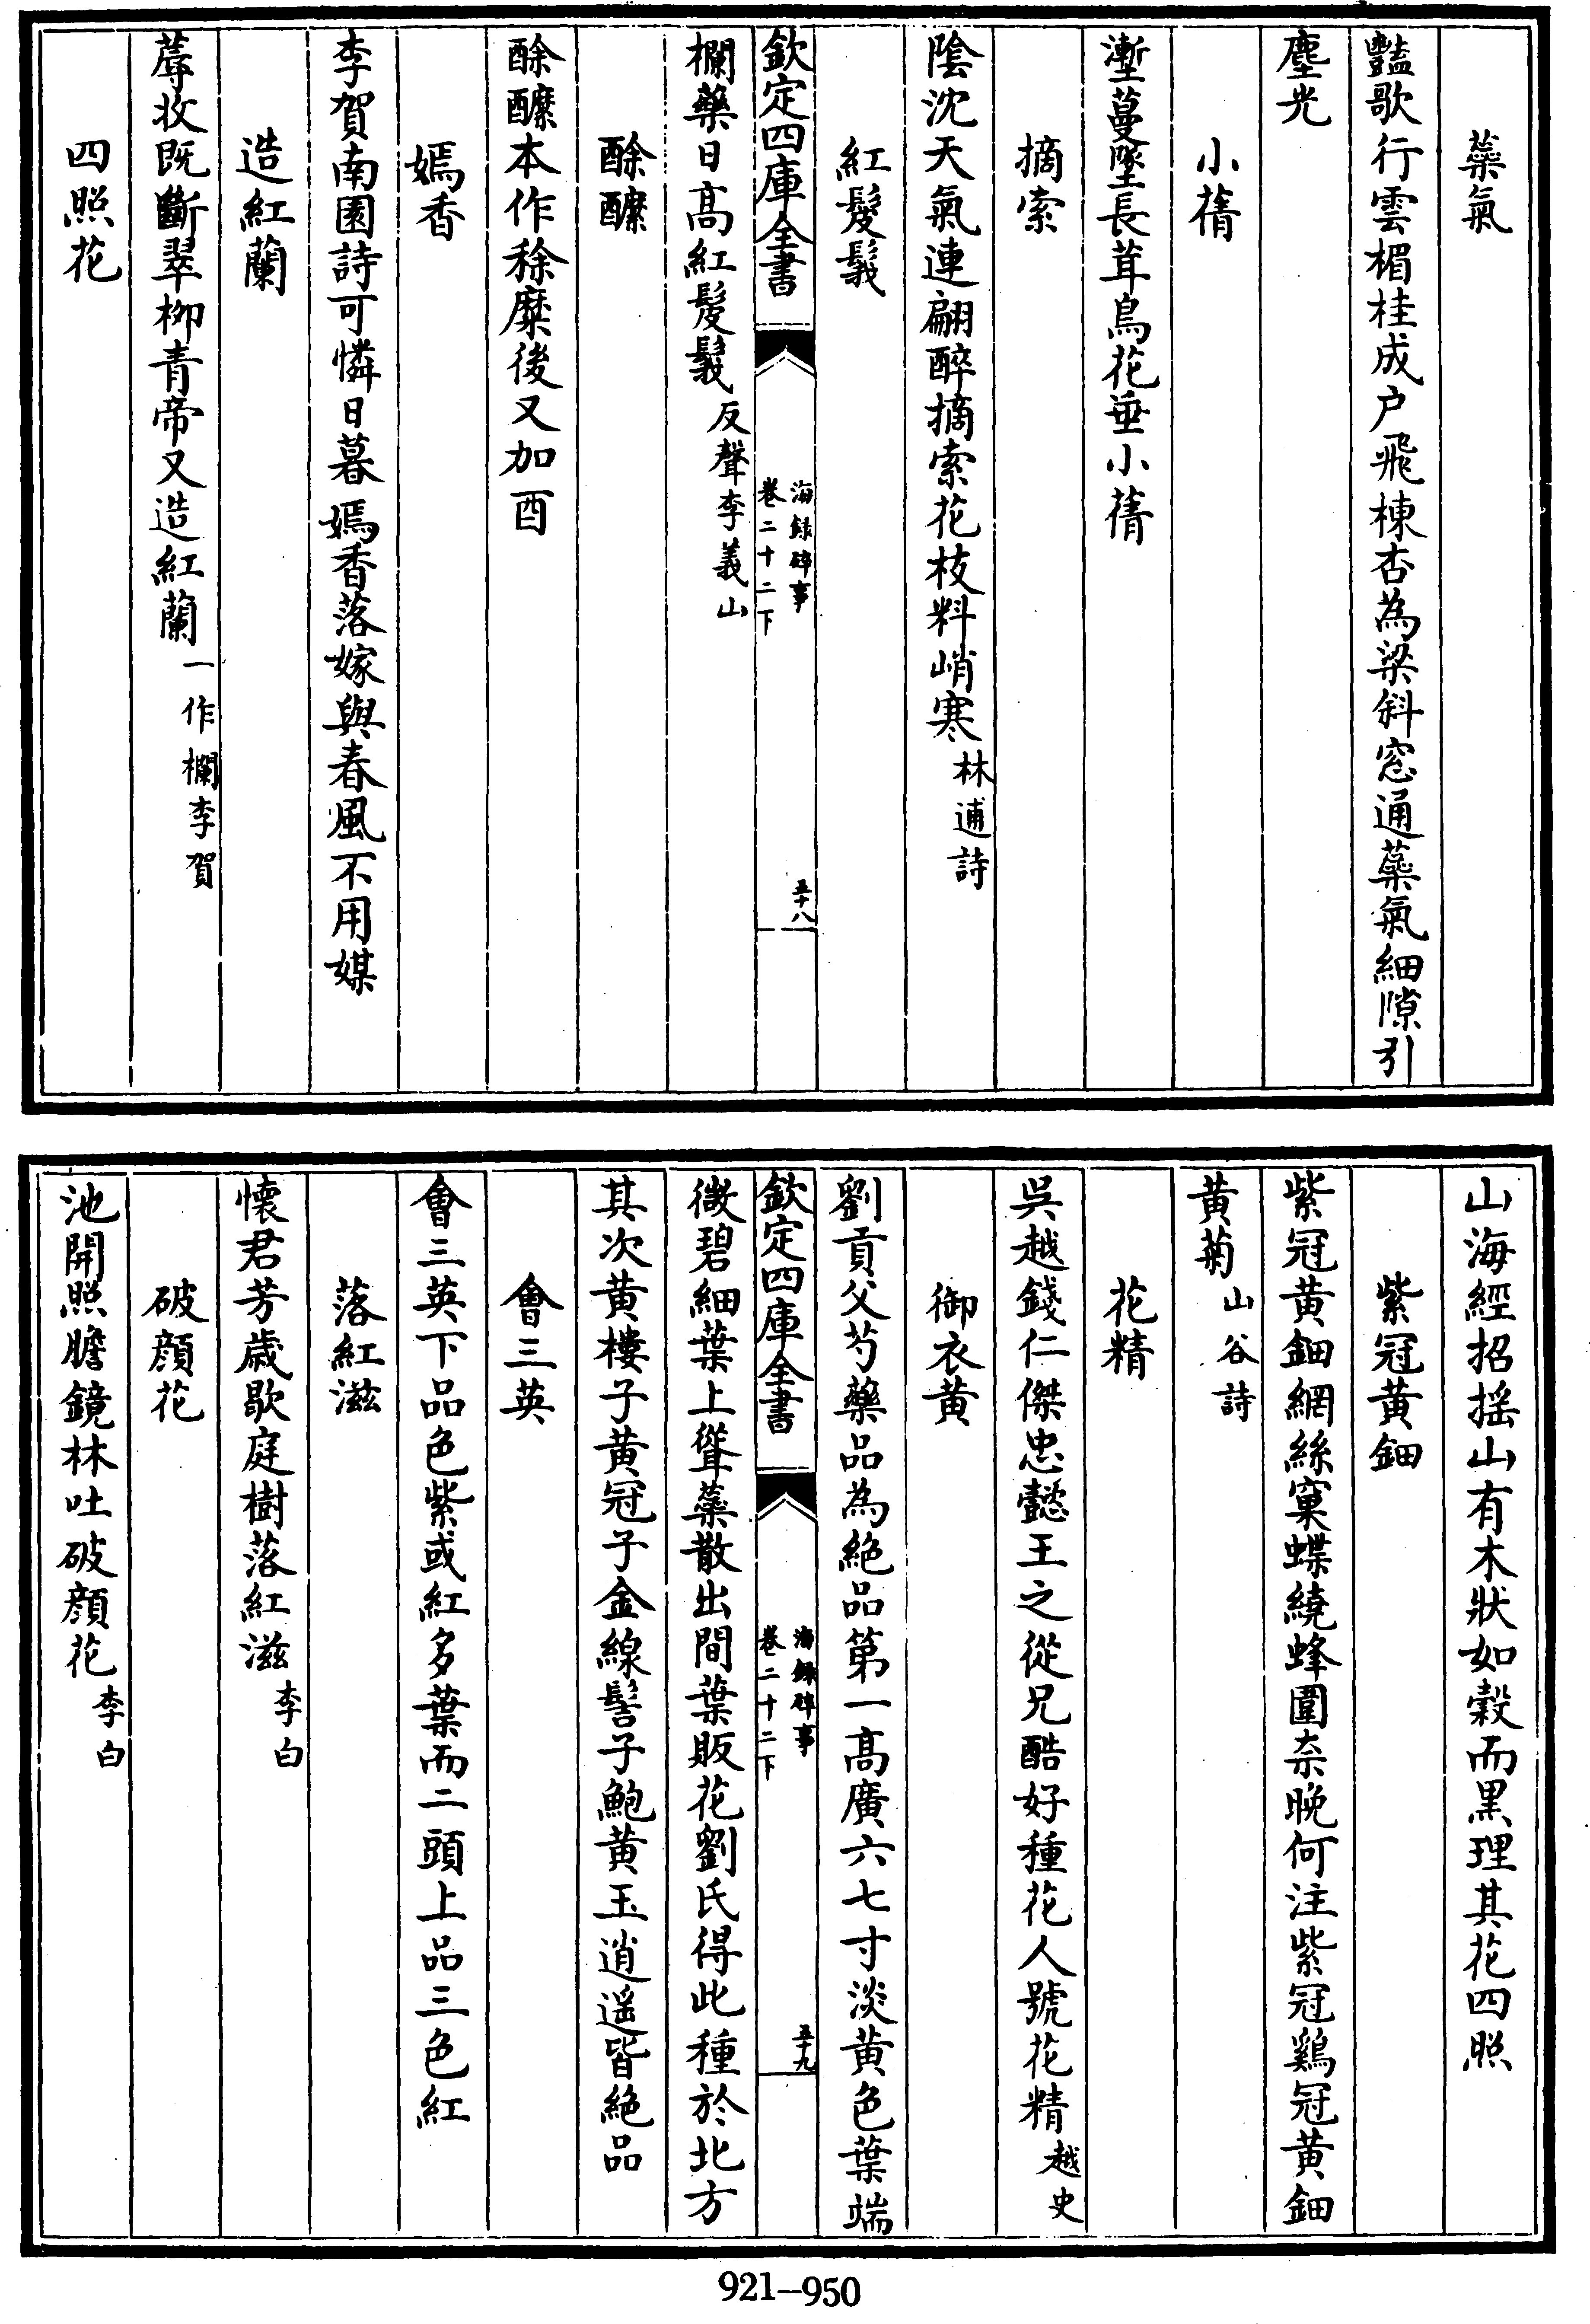 蘂氣
豔歌行雲楣桂成户飛棟杏為梁斜窓通蘂氣細隙引
塵光
小蒨
塹蔓墜長茸鳥花垂小蒨
摘索
陰沈天氣連翩醉摘索花枝料峭寒林逋詩
紅髲鬟
欽定四庫全書
海錄碎事
卷二十二下
五十八
欄藥日髙紅髲鬟反聲李義山
酴醿
酴醿本作稌糜後又加酉
嫣香
李賀南園詩可憐日暮嫣香落嫁與春風不用媒
造紅蘭
蓐收既斷翠柳青帝又造紅蘭一作欄李賀
四照花
山海經招揺山有木狀如榖而黒理其花四照
紫冠黄鈿
紫冠黄鈿網絲窠蝶繞蜂圍奈晚何注紫冠鷄冠黄鈿
黄菊山谷詩
花精
吳越錢仁傑忠懿王之從兄酷好種花人號花精越史
御衣黄
劉貢父芍藥品為絶品第一髙廣六七寸淡黄色葉端
欽定四庫全書
海錄碎事
卷二十二下
五十九
微碧細葉上聳蘂散出間葉販花劉氏得此種於北方
其次黄樓子黄冠子金線髻子鮑黄玉逍遥皆絶品
會三英
會三英下品色紫或紅多葉而二頭上品三色紅
落紅滋
懷君芳歳歇庭樹落紅滋李白
破顔花
池開照膽鏡林吐破顔花李白
921—950